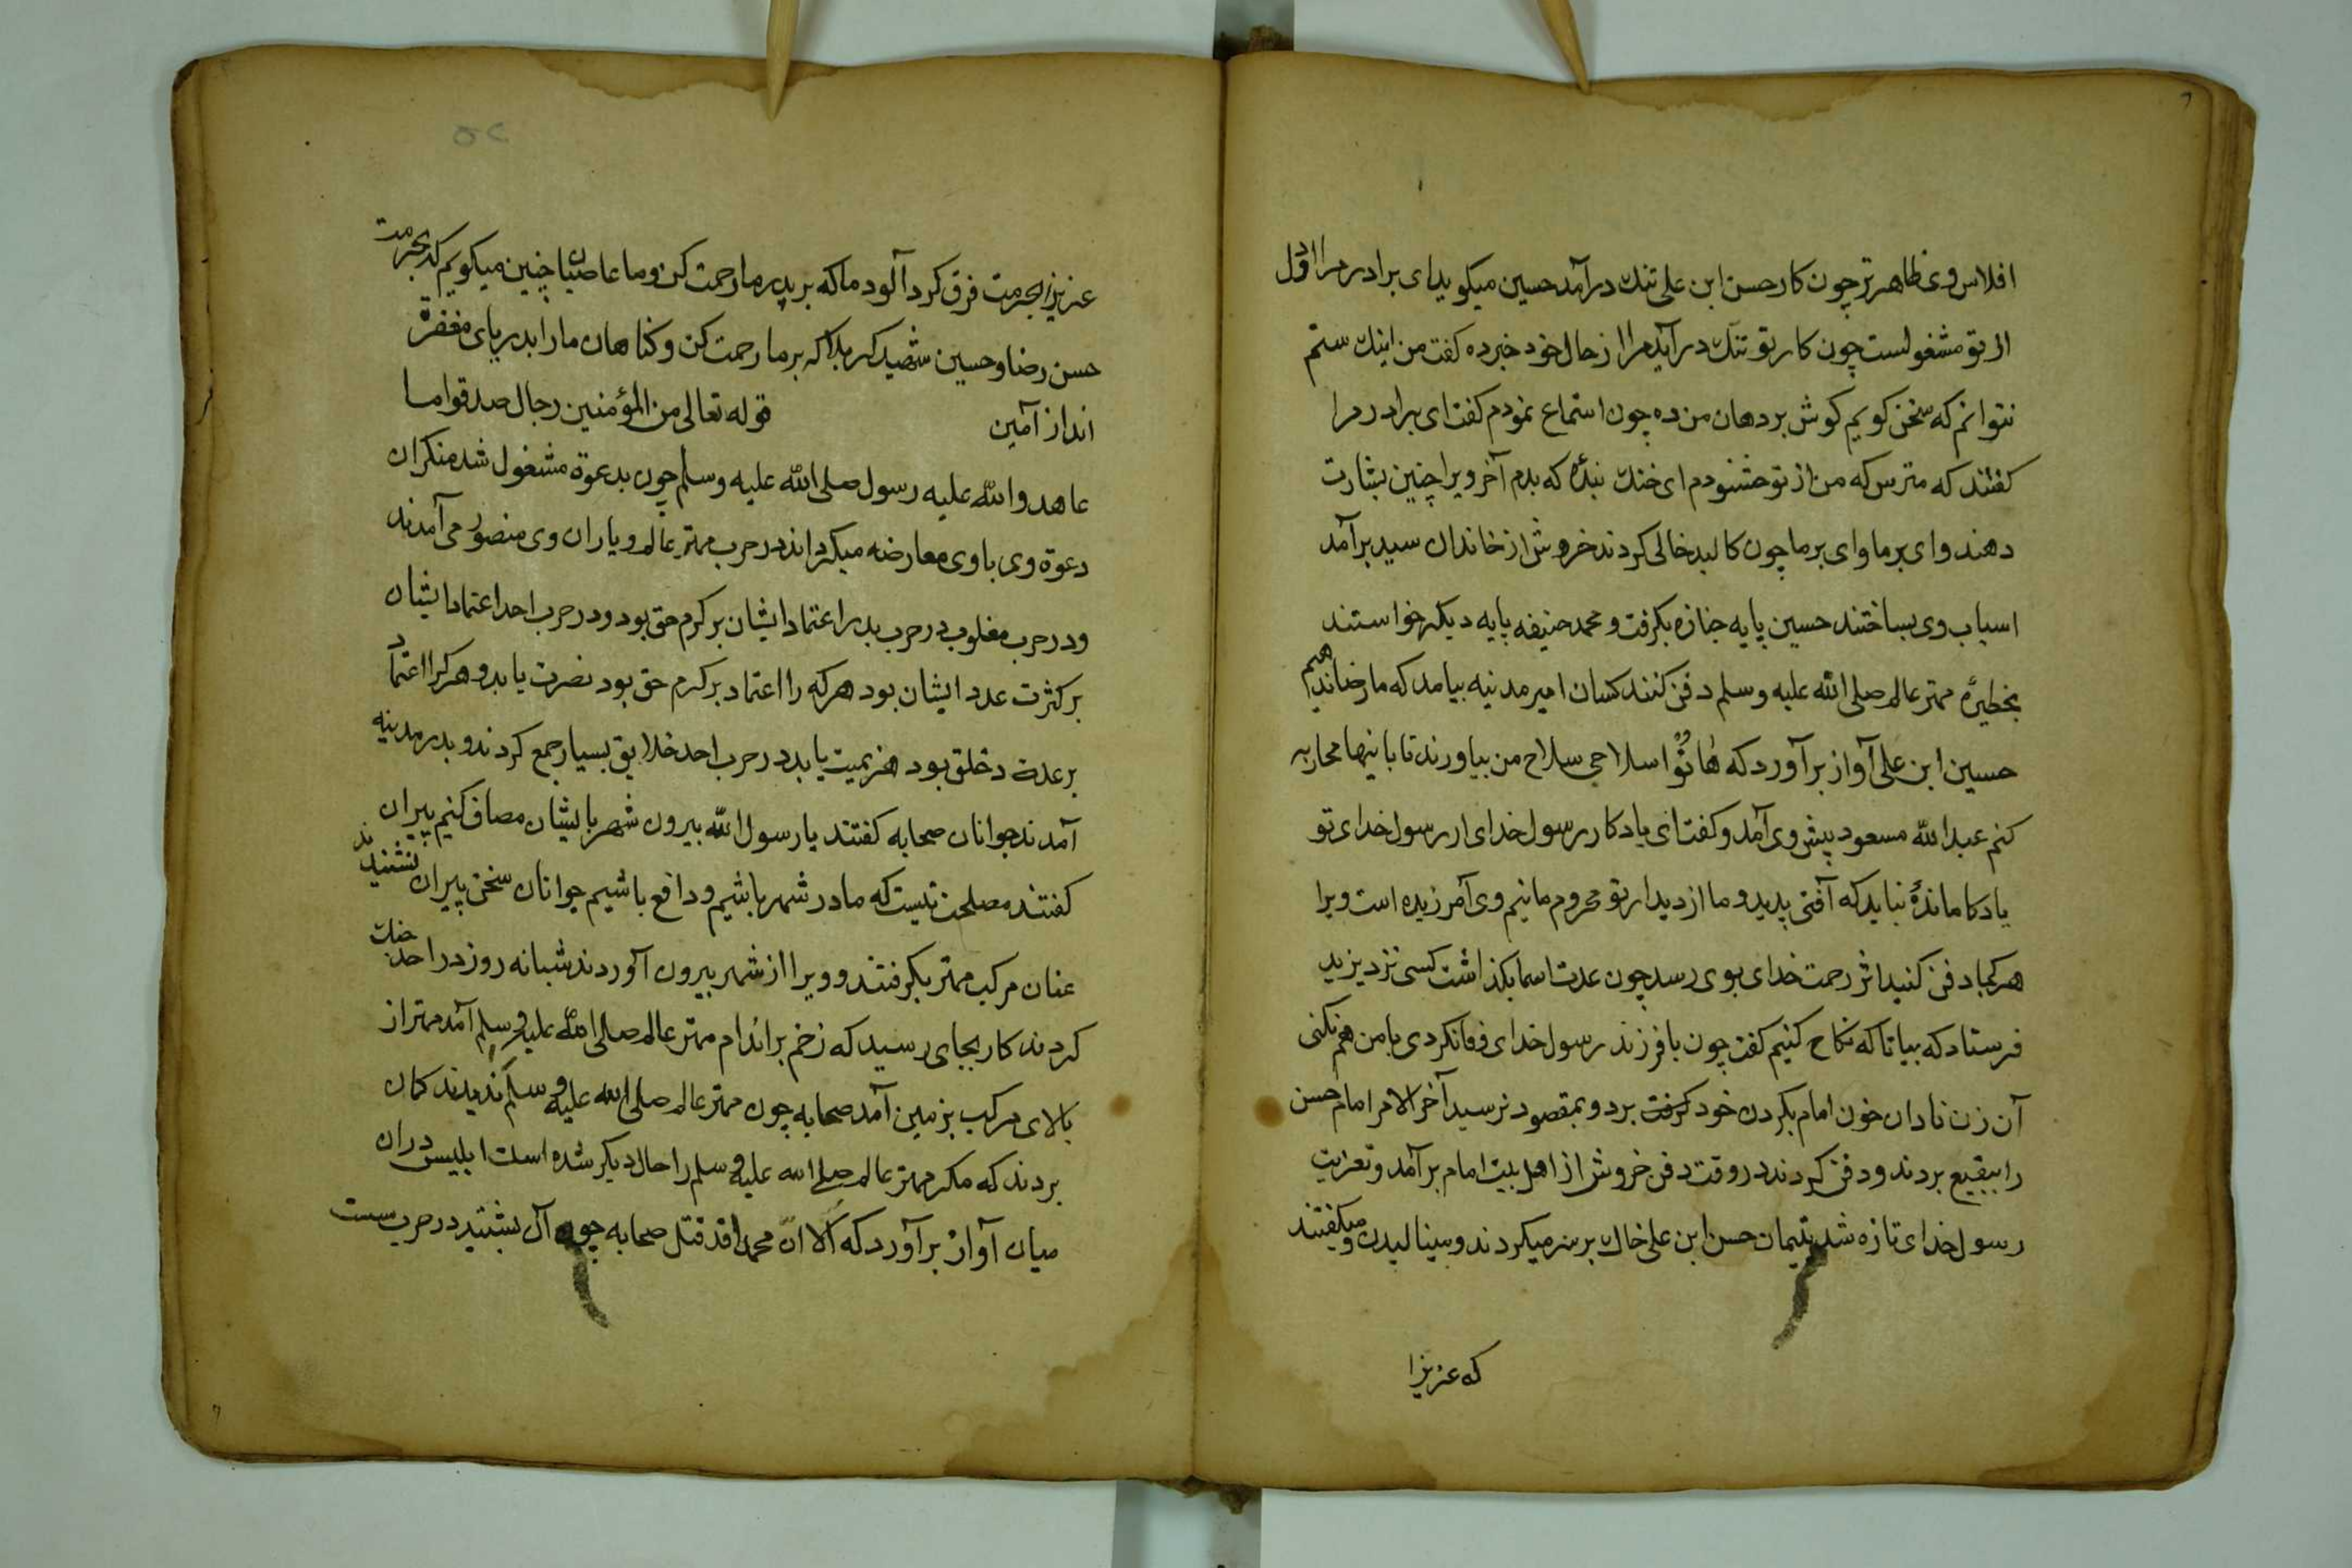 افلاس وی ظاهر تر چون کار حسن ابن علی تنك درآمد حسین میکوید ای برادر مرا اول
از تو مشغولست چون کار تو تنك درآید مرا از حال خود خبر ده کفت من اینك ستم
نتوانم که سخن کویم کوش بر دهان من ده چون استماع نمودم کفت ای برادر مرا
کفتند که مترس که من از تو خشنودم ای خنك بندۀ که بدم آخر ویرا چنین بشارت
دهند و ای بر ما و ای بر ما چون کالبد خالی کردند خروش از خاندان سید برآمد
اسباب وی بساختند حسین پایه جنازه بکرفت و محمد حنیفه پایه دیکر خواستند
بخطیرۀ مهتر عالم صلی الله علیه وسلم دفن کنند کسان امیر مدینه بیامد که ما رضا ندهیم
حسین ابن علی آواز برآورد که هاتوا سلاحی سلاح من بیاورند تا با اینها محاربه
کنم عبدالله مسعود پیش وی آمد و کفت ای یادکار رسول خدای از رسول خدای تو
یادکار ماندۀ نباید که آفتی پدید و ما از دیدار تو محروم مانیم وی آمرزیده است ویرا
هر کجا دفن کنید اثر رحمت خدای بوی رسد چون عدت اسما بکذاشت کسی نزد یزید
فرستاد که بیا تا که نکاح کنیم کفت چون با فرزند رسول خدای وفا نکردی با من هم نکنی
آن زن نادان خون امام بکردن خود کرفت برد و بمقصود نرسید آخر الامر امام حسن
را ببقیع بردند و دفن کردند در وقت دفن خروش از اهل بیت امام برآمد و تعزیت
رسول خدای تازه شد یتیمان حسن ابن علی خاك بر سر میکردند و مینالیدن و میکفتند
که عزیزا
عزیزا بحرمت فرق کرد آلود ما که بر پدر ما رحمت کن و ما عاصیان چنین میکویم که بحرمت
حسن رضا و حسین شهید کربلا که بر ما رحمت کن و کناهان ما را بدریای مغفرة
انداز آمین قوله تعالی من المؤمنین رجال صدقوا ما
عاهدوا الله علیه رسول صلی الله علیه وسلم چون بدعوة مشغول شد منکران
دعوة وی با وی معارضه میکردند در حرب مهتر عالم و یاران وی منصور می آمدند
و در حرب مغلوب در حرب بدر اعتماد ایشان بر کرم حق بود و در حرب احد اعتماد ایشان
بر کثرت عدد ایشان بود هر که را اعتماد بر کرم حق بود نصرت یابد و هر کرا اعتماد
بر عدت خلق بود هزیمت یابد در حرب احد خلایق بسیار جمع کردند و بدر مدینه
آمدند جوانان صحابه کفتند یا رسول الله بیرون شهر با ایشان مصاف کنیم پیران
کفتند مصلحت نیست که ما در شهر باشیم و دافع باشیم جوانان سخن پیران نشنیدند
عنان مرکب مهتر بکرفتند و ویرا از شهر بیرون آوردند شبانه روز در احد
کردند کار بجای رسید که زخم بر اندام مهتر عالم صلی الله علیه وسلم آمد مهتر از
بالای مرکب بزمین آمد صحابه چون مهتر عالم صلی الله علیه وسلم ندیدند کمان
بردند که مکر مهتر عالم صلی الله علیه وسلم را حال دیکر شده است ابلیس دران
میان آواز برآورد که الا ان محمدا قد قتل صحابه چون آن بشنید در حرب سست